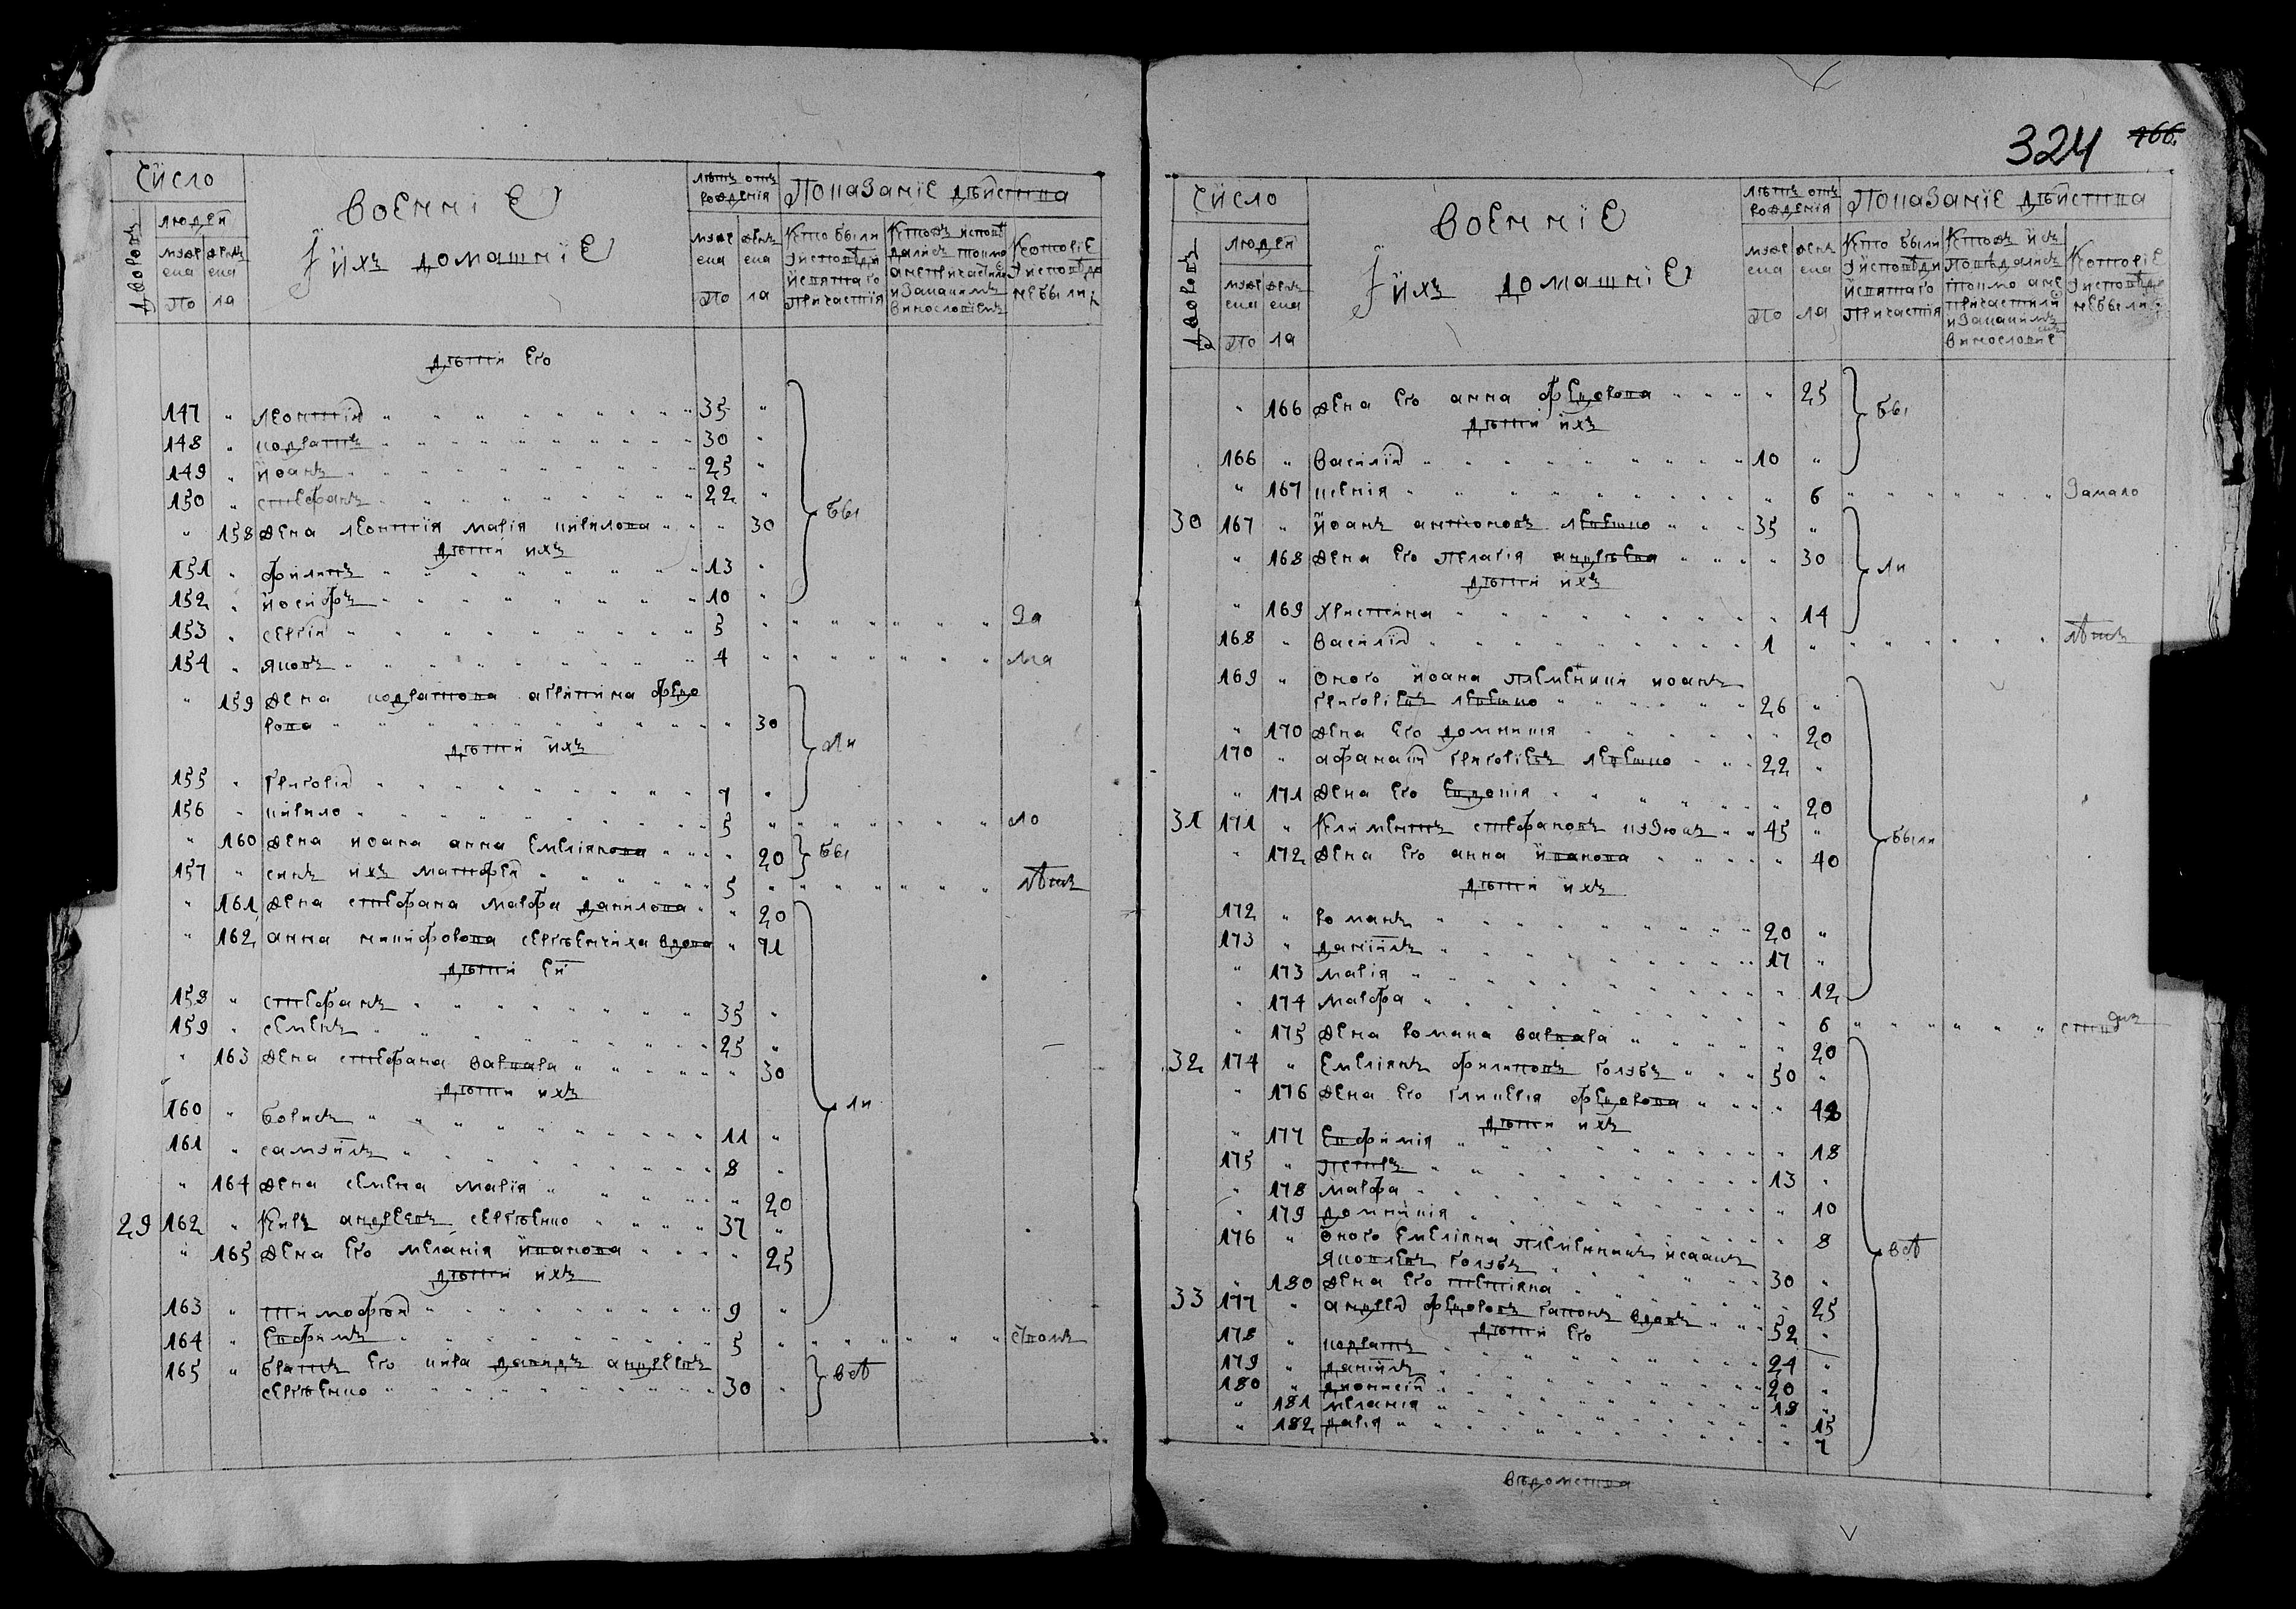 Число
Дворовъ
людей
мужеска
женска
по
ла
военніе
и ихъ домашніе
лѣтъ отъ рожденія
мужеска
женска
по
ла
Показаніе дѣйства
Кто были
у исповѣди
и святаго
причастія
Кто исповѣ
дался токмо
а не причастился
и за какимъ
винословіемъ
Которіе
у исповѣди
не были
дѣти его
147 " леонтій " 35 "
148 " кодратъ " 30 "
149 " иоанъ " 25 "
150 " стефанъ " 22 "
" 158 жена леонтія марія кирилова " " 30
бы
дѣти ихъ
151 " филипъ " 13 "
152 " иосифъ " 10 "
153 " сергій " 5 " за
154 " яковъ " 4 " ма
" 159 жена кодратова агрипина федо
рова " " 30
дѣти ихъ
ли
155 " григорій " 7 "
156 " кирило " 5 " ло
" 160 жена иоана анна емеліянова " " 20 бы
157 " синъ ихъ матфей " 5 " лѣтъ
" 161 жена стефана марфа данилова " " 20
" 162 анна никифорова сергѣенчиха вдова " 71
дѣти ей
158 " стефанъ " 35 "
159 " семенъ " 25 "
" 163 жена стефана варвара " " 30
дѣти ихъ
ли
160 " борисъ " 11 "
161 " самуйлъ " 8 "
" 164 жена семена марія " " 20
29 162 " Киръ андреевъ сергѣенко " 37 "
" 165 жена его меланія иванова " " 25
дѣти ихъ
163 " тимофѣй " 9 "
164 " евфимъ " 5 " сполъ
165 " братъ его кира давидъ андреевъ
сергѣенко " 30 " всѣ
324 166.
Число
Дворовъ
людей
мужеска
женска
по
ла
военніе
и ихъ домашніе
лѣтъ отъ рожденія
мужеска
женска
по
ла
Показаніе дѣйства
Кто были
у исповѣди
и святаго
причастія
Кто ис
повѣдался
токмо а не
причастился
и за какимъ
винословіе
Которіе
у исповѣди
не были
" 166 жена его анна федорова " " 25
дѣти ихъ
бы
166 " василій " 10 "
" 167 ксенія " " 6 " замало
30 167 " иоанъ антоновъ левешко " 35 "
" 168 жена его пелагія андреева " " 30
ли
дѣти ихъ
" 169 христина " " 14
168 " василій " 1 " лѣтъ
169 " оного иоана племеники иоанъ
григоріевъ левешко " 26 "
" 170 жена его домникія " " 20
170 " афанасій григоріевъ левешко " 22 "
" 171 жена его евдокія " " 20
31 171 " Климентъ стефановъ кузюкъ " 45 "
были
" 172 жена его анна иванова " " 40
дѣти ихъ
172 " романъ " 20 "
173 " даніилъ " 17 "
" 173 марія " " 12
" 174 марфа " " 6
" 175 жена романа варвара " " 20
32 174 " емеліянъ филиповъ голубъ " 50 "
" 176 жена его гликерія федорова " " 48
дѣти ихъ
" 177 евфимія " " 18
175 " петръ " 13 "
" 178 марфа " " 10
" 179 домникія " " 8
176 " оного емеліяна племенникъ исаакъ
яковлевъ голубъ " 30 "
всѣ
" 180 жена его тетіяна " " 25
33 177 " андрей федоровъ гапонъ вдовъ " 52 "
дѣти его
178 " кодратъ " 24 "
179 " даніилъ " 20 "
180 " дионисій " 18 "
" 181 меланія " " 15
" 182 дарія " " 7
вѣдомства